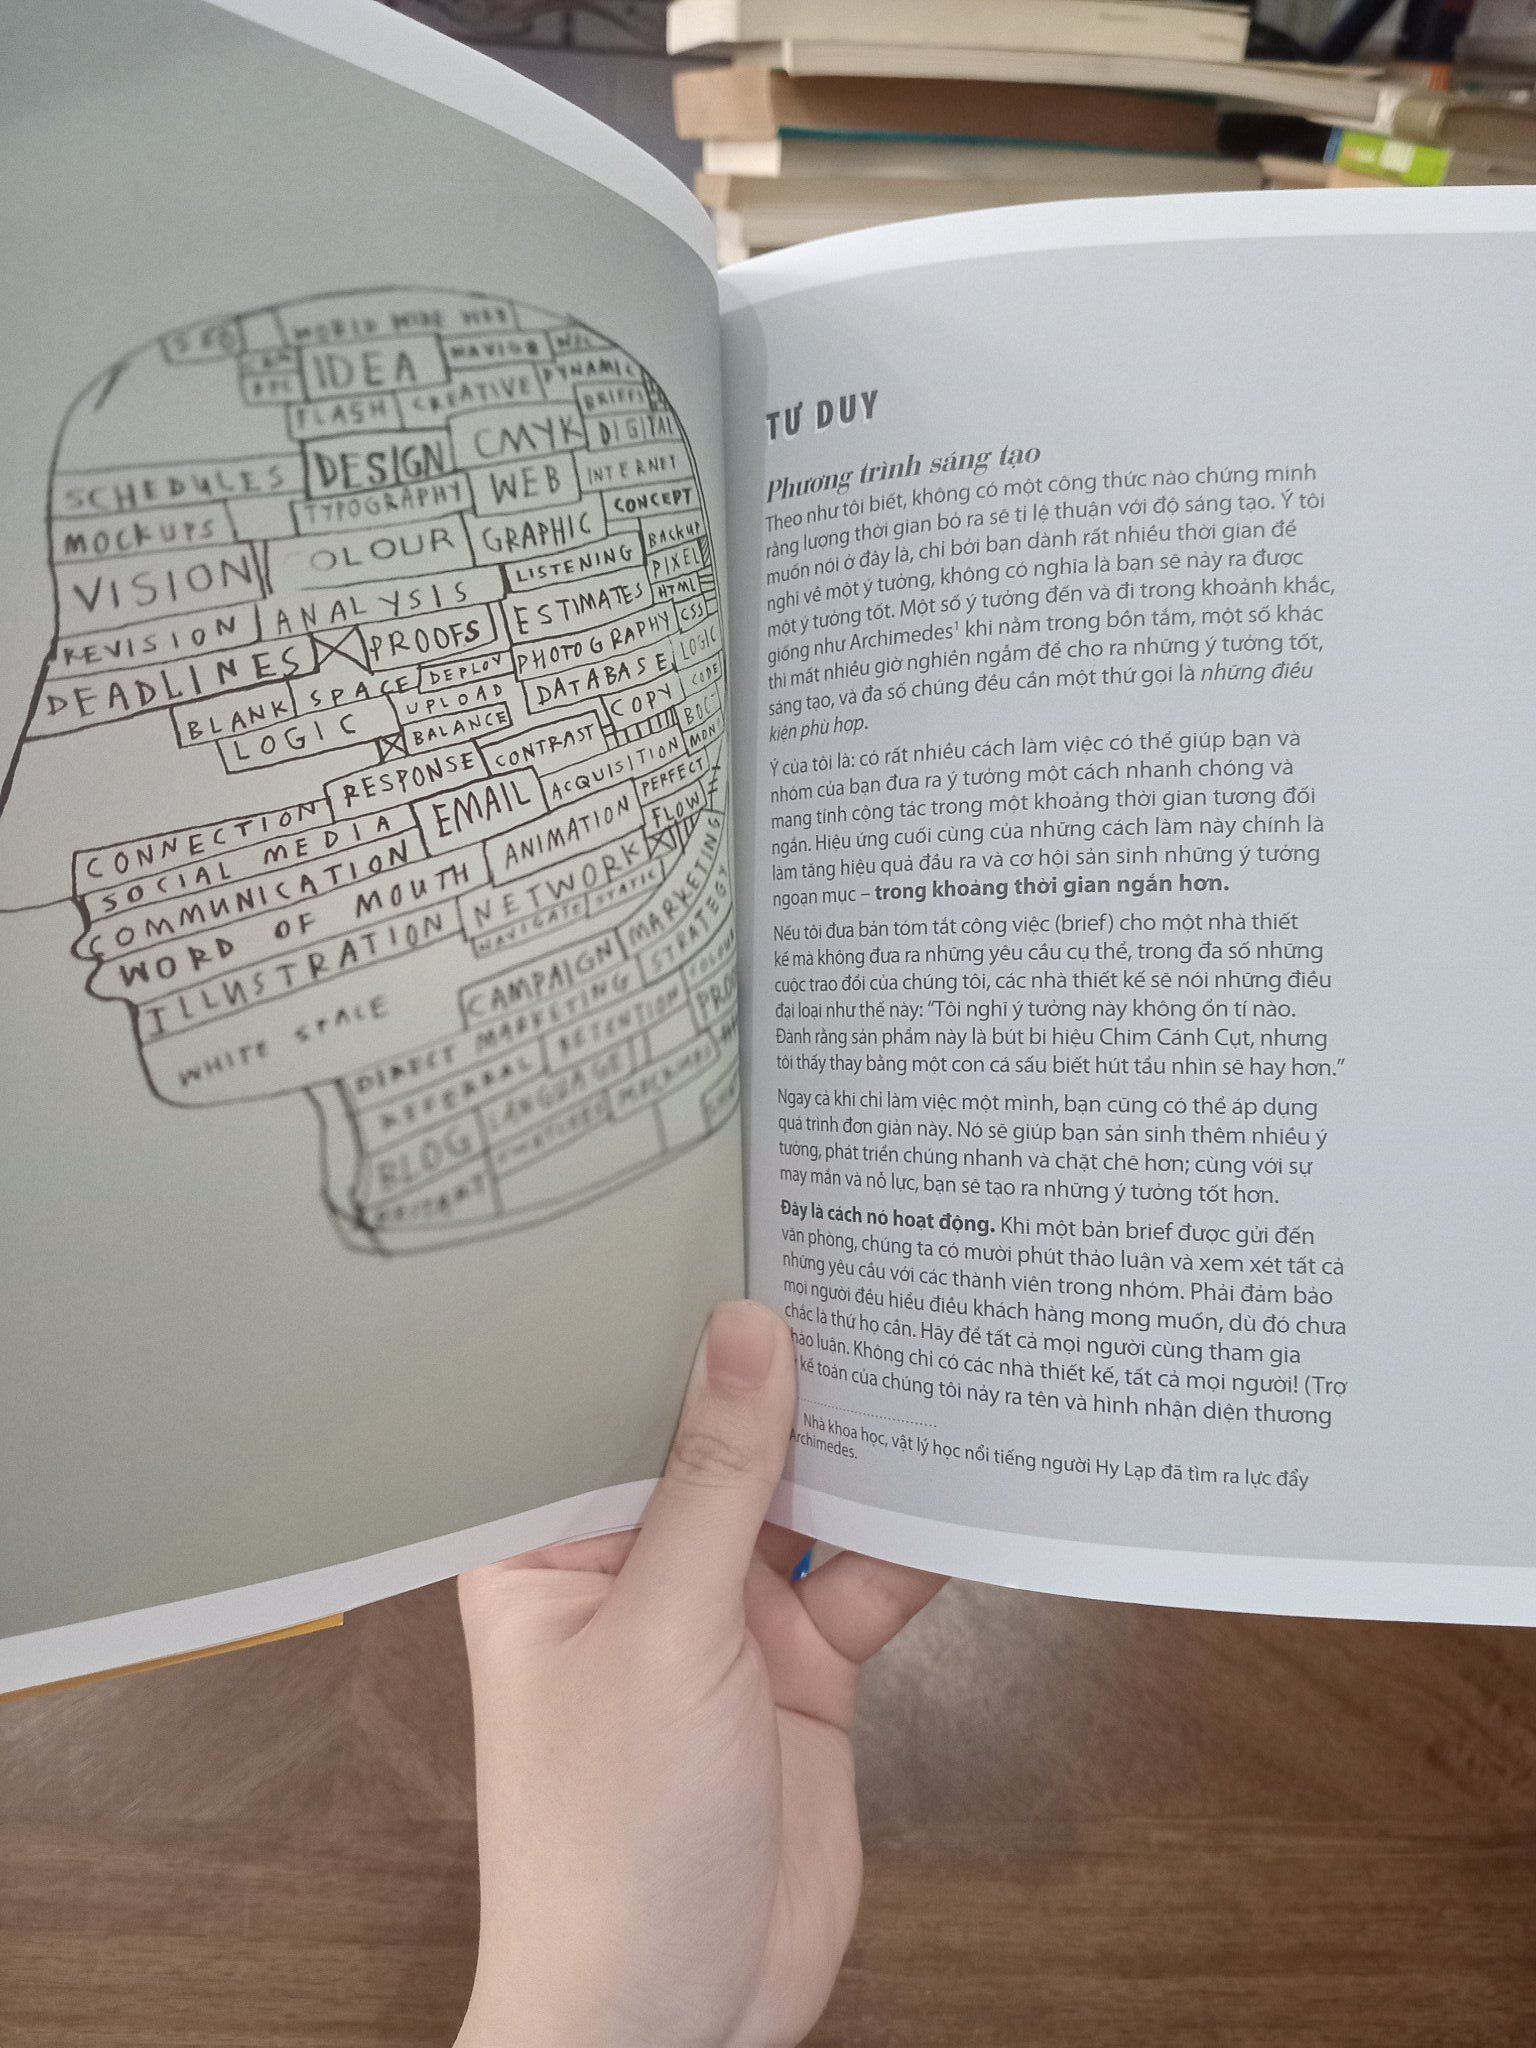 WORLD WIDE WEB
IDEA
FLASH
CREATIVE
DYNAMIC
BRIEFS
SCHEDULES
DESIGN
CMYK
DIGITAL
MOCKUPS
TYPOGRAPHY
WEB
INTERNET
VISION
COLOUR
GRAPHIC
CONCEPT
REVISION
ANALYSIS
LISTENING
BACKUP
DEADLINES
PROOFS
ESTIMATES
PIXEL
HTML
BLANK SPACE
DEPLOY
PHOTOGRAPHY
CSS
LOGIC
UPLOAD
DATABASE
LOGIC
BALANCE
COPY
CODE
CONNECTION
RESPONSE
CONTRAST
SOCIAL MEDIA
EMAIL
ACQUISITION
COMMUNICATION
ANIMATION
PERFECT
WORD OF MOUTH
NETWORK
FLOW
ILLUSTRATION
NAVIGATE
STATIC
MARKETING
WHITE SPACE
CAMPAIGN
STRATEGY
DIRECT MARKETING
REFERRAL
RETENTION
BLOG
LANGUAGE
TƯ DUY
Phương trình sáng tạo
Theo như tôi biết, không có một công thức nào chứng minh
rằng lượng thời gian bỏ ra sẽ tỉ lệ thuận với độ sáng tạo. Ý tôi
muốn nói ở đây là, chỉ bởi bạn dành rất nhiều thời gian để
nghĩ về một ý tưởng, không có nghĩa là bạn sẽ nảy ra được
một ý tưởng tốt. Một số ý tưởng đến và đi trong khoảnh khắc,
giống như Archimedes¹ khi nằm trong bồn tắm, một số khác
thì mất nhiều giờ nghiền ngẫm để cho ra những ý tưởng tốt,
sáng tạo, và đa số chúng đều cần một thứ gọi là những điều
kiện phù hợp.
Ý của tôi là: có rất nhiều cách làm việc có thể giúp bạn và
nhóm của bạn đưa ra ý tưởng một cách nhanh chóng và
mang tính cộng tác trong một khoảng thời gian tương đối
ngắn. Hiệu ứng cuối cùng của những cách làm này chính là
làm tăng hiệu quả đầu ra và cơ hội sản sinh những ý tưởng
ngoạn mục – trong khoảng thời gian ngắn hơn.
Nếu tôi đưa bản tóm tắt công việc (brief) cho một nhà thiết
kế mà không đưa ra những yêu cầu cụ thể, trong đa số những
cuộc trao đổi của chúng tôi, các nhà thiết kế sẽ nói những điều
đại loại như thế này: “Tôi nghĩ ý tưởng này không ổn tí nào.
Đành rằng sản phẩm này là bút bi hiệu Chim Cánh Cụt, nhưng
tôi thấy thay bằng một con cá sấu biết hút tẩu nhìn sẽ hay hơn.”
Ngay cả khi chỉ làm việc một mình, bạn cũng có thể áp dụng
quá trình đơn giản này. Nó sẽ giúp bạn sản sinh thêm nhiều ý
tưởng, phát triển chúng nhanh và chặt chẽ hơn; cùng với sự
may mắn và nỗ lực, bạn sẽ tạo ra những ý tưởng tốt hơn.
Đây là cách nó hoạt động. Khi một bản brief được gửi đến
văn phòng, chúng ta có mười phút thảo luận và xem xét tất cả
những yêu cầu với các thành viên trong nhóm. Phải đảm bảo
mọi người đều hiểu điều khách hàng mong muốn, dù đó chưa
chắc là thứ họ cần. Hãy để tất cả mọi người cùng tham gia
thảo luận. Không chỉ có các nhà thiết kế, tất cả mọi người! (Trợ
kế toán của chúng tôi nảy ra tên và hình nhận diện thương
Nhà khoa học, vật lý học nổi tiếng người Hy Lạp đã tìm ra lực đẩy
Archimedes.